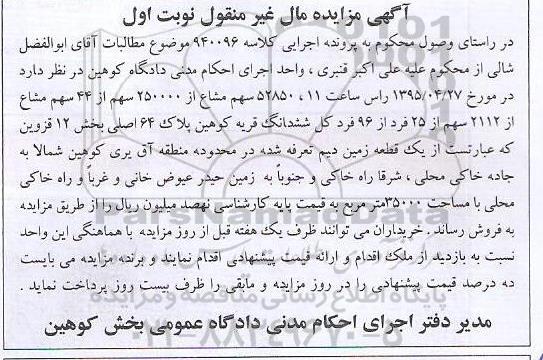 آگهی مزایده مال غیر منقول نوبت اول
در راستای وصول محکوم به پرونده اجرایی کلاسه ۹۴۰۰۹۶ موضوع مطالبات آقای ابوالفضل
شالی از محکوم علیه علی اکبر قنبری ، واحد اجرای احکام مدنی دادگاه کوهین در نظر دارد
در مورخ ۱۳۹۵/۰۴/۲۷ راس ساعت ۱۱ ، ۵۲۸۵۰ سهم مشاع از ۲۵۰۰۰۰ سهم از ۴۴ سهم مشاع
از ۲۱۱۲ سهم از ۲۵ فرد از ۹۶ فرد کل ششدانگ قریه کوهین پلاک ۶۴ اصلی بخش ۱۲ قزوین
که عبارتست از یک قطعه زمین دیم تعرفه شده در محدوده منطقه آق یری کوهین شمالا به
جاده خاکی محلی ، شرقا راه خاکی و جنوباً به زمین حیدر عیوض خانی و غرباً و راه خاکی
محلی با مساحت ۳۵۰۰۰متر مربع به قیمت پایه کارشناسی نهصد میلیون ریال را از طریق مزایده
به فروش رساند . خریداران می توانند ظرف یک هفته قبل از روز مزایده با هماهنگی این واحد
نسبت به بازدید از ملک اقدام و ارائه قیمت پیشنهادی اقدام نمایند و برنده مزایده می بایست
ده درصد قیمت پیشنهادی را در روز مزایده و مابقی را ظرف بیست روز پرداخت نماید .
مدیر دفتر اجرای احکام مدنی دادگاه عمومی بخش کوهین
ParsNamadData
پایگاه اطلاع رسانی مناقصه و مزایده
۰۲۱-۸۸۳۴۹۶۷۰-۵